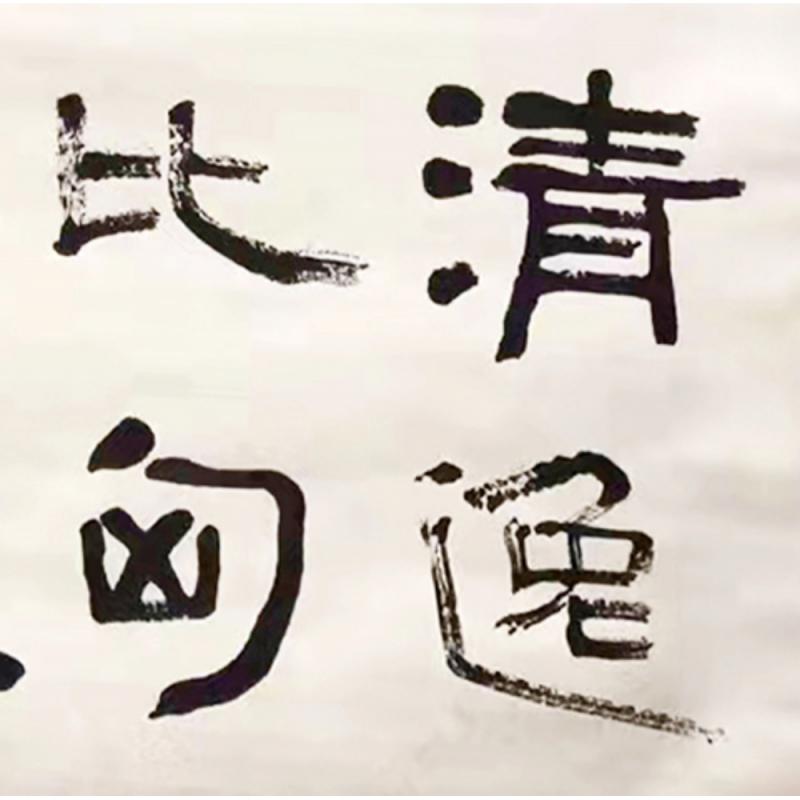 清逸
比匈